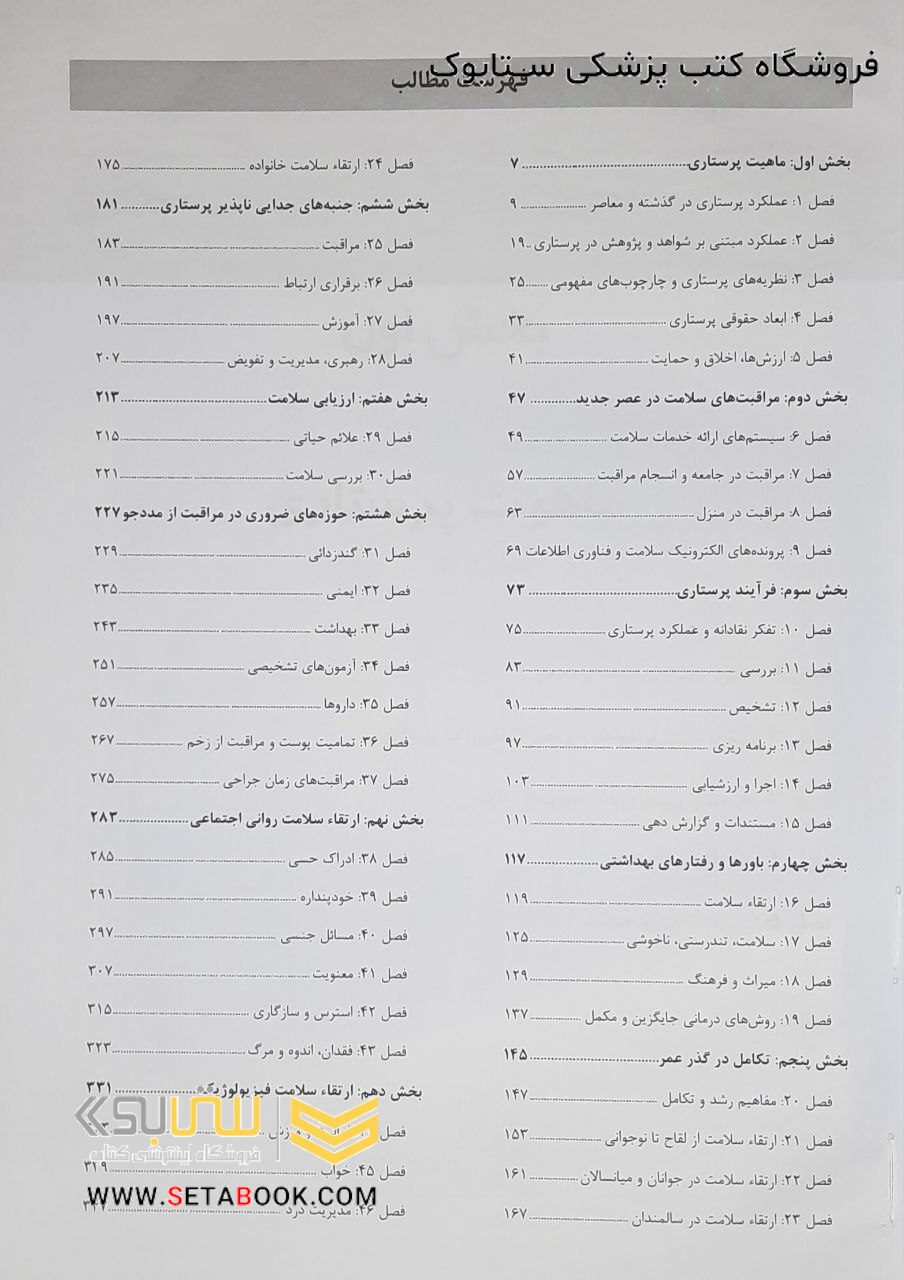 فروشگاه کتب پزشکی ستابوک
فهرست مطالب
بخش اول: ماهیت پرستاری ۷
فصل ۱: عملکرد پرستاری در گذشته و معاصر ۹
فصل ۲: عملکرد مبتنی بر شواهد و پژوهش در پرستاری ۱۹
فصل ۳: نظریه‌های پرستاری و چارچوب‌های مفهومی ۲۵
فصل ۴: ابعاد حقوقی پرستاری ۳۳
فصل ۵: ارزش‌ها، اخلاق و حمایت ۴۱
بخش دوم: مراقبت‌های سلامت در عصر جدید ۴۷
فصل ۶: سیستم‌های ارائه خدمات سلامت ۴۹
فصل ۷: مراقبت در جامعه و انسجام مراقبت ۵۷
فصل ۸: مراقبت در منزل ۶۳
فصل ۹: پرونده‌های الکترونیک سلامت و فناوری اطلاعات ۶۹
بخش سوم: فرآیند پرستاری ۷۳
فصل ۱۰: تفکر نقادانه و عملکرد پرستاری ۷۵
فصل ۱۱: بررسی ۸۳
فصل ۱۲: تشخیص ۹۱
فصل ۱۳: برنامه ریزی ۹۷
فصل ۱۴: اجرا و ارزشیابی ۱۰۳
فصل ۱۵: مستندات و گزارش دهی ۱۱۱
بخش چهارم: باورها و رفتارهای بهداشتی ۱۱۷
فصل ۱۶: ارتقاء سلامت ۱۱۹
فصل ۱۷: سلامت، تندرستی، ناخوشی ۱۲۵
فصل ۱۸: میراث و فرهنگ ۱۲۹
فصل ۱۹: روش‌های درمانی جایگزین و مکمل ۱۳۷
بخش پنجم: تکامل در گذر عمر ۱۴۵
فصل ۲۰: مفاهیم رشد و تکامل ۱۴۷
فصل ۲۱: ارتقاء سلامت از لقاح تا نوجوانی ۱۵۳
فصل ۲۲: ارتقاء سلامت در جوانان و میانسالان ۱۶۱
فصل ۲۳: ارتقاء سلامت در سالمندان ۱۶۷
فصل ۲۴: ارتقاء سلامت خانواده ۱۷۵
بخش ششم: جنبه‌های جدایی ناپذیر پرستاری ۱۸۱
فصل ۲۵: مراقبت ۱۸۳
فصل ۲۶: برقراری ارتباط ۱۹۱
فصل ۲۷: آموزش ۱۹۷
فصل۲۸: رهبری، مدیریت و تفویض ۲۰۷
بخش هفتم: ارزیابی سلامت ۲۱۳
فصل ۲۹: علائم حیاتی ۲۱۵
فصل۳۰: بررسی سلامت ۲۲۱
بخش هشتم: حوزه‌های ضروری در مراقبت از مددجو ۲۲۷
فصل ۳۱: گندزدائی ۲۲۹
فصل ۳۲: ایمنی ۲۳۵
فصل ۳۳: بهداشت ۲۴۳
فصل ۳۴: آزمون‌های تشخیصی ۲۵۱
فصل ۳۵: داروها ۲۵۷
فصل ۳۶: تمامیت پوست و مراقبت از زخم ۲۶۷
فصل ۳۷: مراقبت‌های زمان جراحی ۲۷۵
بخش نهم: ارتقاء سلامت روانی اجتماعی ۲۸۳
فصل ۳۸: ادراک حسی ۲۸۵
فصل ۳۹: خودپنداره ۲۹۱
فصل ۴۰: مسائل جنسی ۲۹۷
فصل ۴۱: معنویت ۳۰۷
فصل ۴۲: استرس و سازگاری ۳۱۵
فصل ۴۳: فقدان، اندوه و مرگ ۳۲۳
بخش دهم: ارتقاء سلامت فیزیولوژیک ۳۳۱
فصل
فصل ۴۵: خواب ۳۳۹
فصل ۴۶: مدیریت درد
ستابوک
فروشگاه اینترنتی کتاب
WWW.SETABOOK.COM